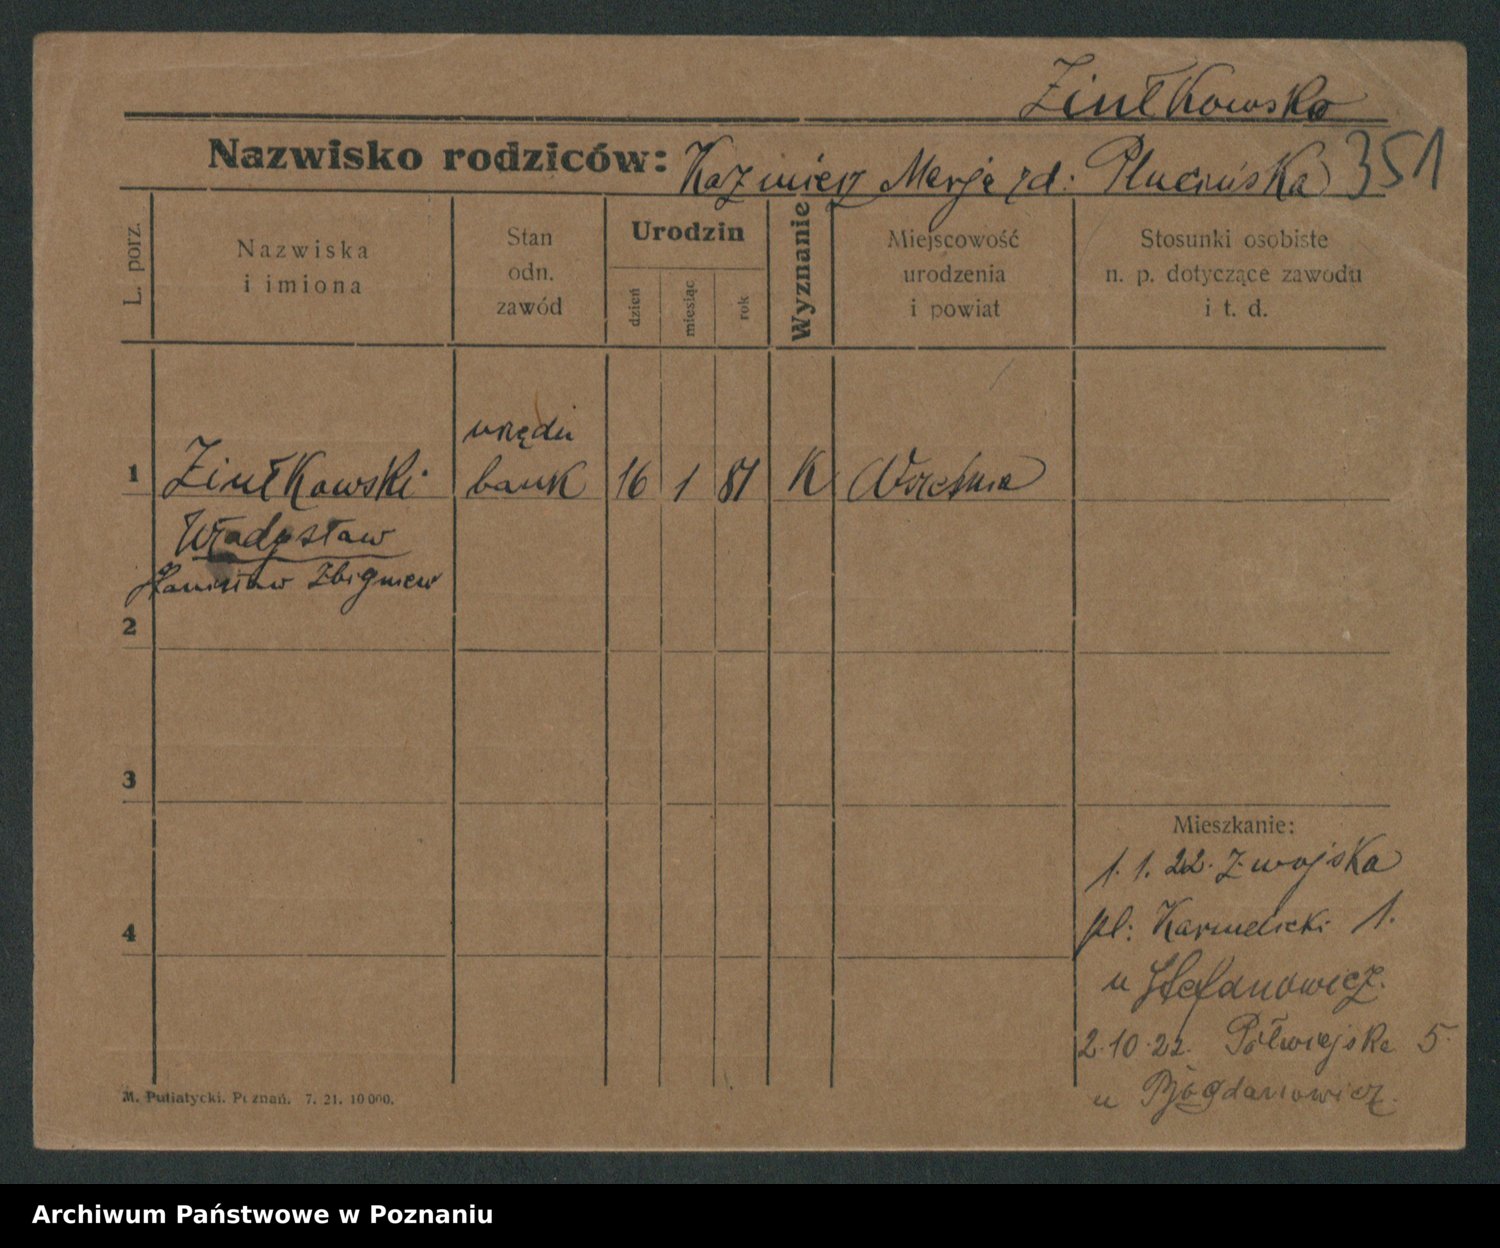 Ziułkowska
Nazwisko rodziców: Kazmierz Marja zd: Plucińska 351
L. porz.
Nazwiska
i imiona
Stan
odn.
zawód
Urodzin
dzień
miesiąc
rok
Wyznanie
Miejscowość
urodzenia
i powiat
Stosunki osobiste
n. p. dotyczące zawodu
i t. d.
urzędn
1 Ziułkowski bank 16 1 81 K Września
Władysław
Stanisław Zbigniew
2
3
4
Mieszkanie:
1. 1. 22. z wojska
pl: Karmelicki 1.
u Stefanowicz.
2.10.22. Półwiejska 5.
u Bogdanowicz.
M. Putiatycki. Poznań. 7. 21. 10000.
Archiwum Państwowe w Poznaniu